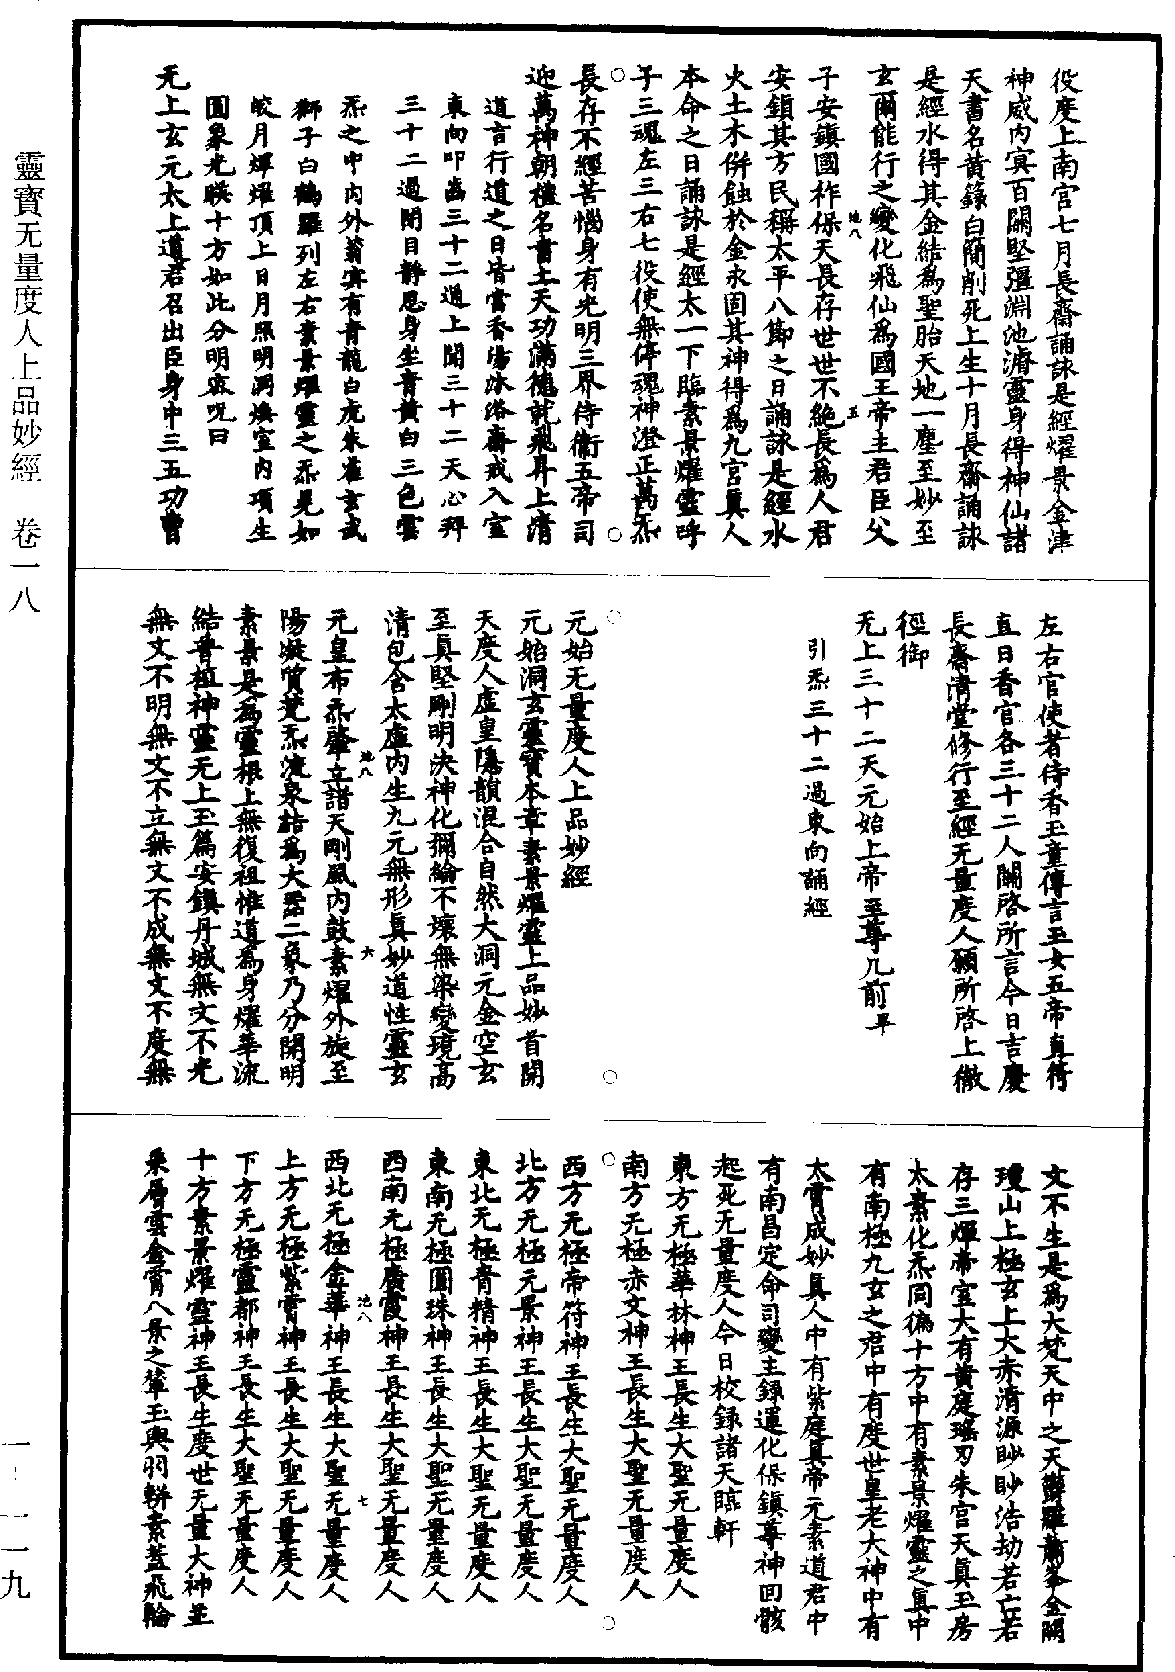 靈寶无量度人上品妙經　卷一八
一：一一九
役度上南宮七月長齋誦詠是經燿景金津
神威內冥百關堅彊淵池濟靈身得神仙諸
天書名黃籙白簡削死上生十月長齋誦詠
是經水得其金結為聖胎天地一塵至妙至
玄爾能行之變化飛仙為國王帝主君臣父
子安鎮國祚保天長存世世不絕長為人君
安鎮其方民稱太平八節之日誦詠是經水
火土木併蝕於金永固其神得為九宮真人
本命之日誦詠是經太一下臨素景燿靈呼
子三魂左三右七役使無停魂神澄正萬炁
長存不經苦惱身有光明三界侍衛五帝司
迎萬神朝禮名書上天功滿德就飛昇上清
道言行道之日皆當香湯沐浴齋戒入室
東向叩齒三十二通上聞三十二天心拜
三十二過閉目靜思身坐青黃白三色雲
炁之中內外蓊冥有青龍白虎朱雀玄武
獅子白鶴羅列左右素景燿靈之炁晃如
皎月煇燿頂上日月照明洞煥室內項生
圓象光暎十方如此分明密呪曰
无上玄元太上道君召出臣身中三五功曹
左右官使者侍香玉童傳言玉女五帝直符
直日香官各三十二人關啓所言今日吉慶
長齋清堂修行至經无量度人願所啓上徹
徑御
无上三十二天元始上帝至尊几前畢
引炁三十二過東向誦經
元始无量度人上品妙經
元始洞玄靈寶本章素景燿靈上品妙首開
天度人虛皇隱韻混合自然大洞元金空玄
至真堅剛明決神化彌綸不壞無染變現高
清包含太虛內生九元無形真妙道性靈玄
元皇布炁肇立諸天剛風內鼓素燿外旋至
陽凝質梵炁流泉結為大器二象乃分開明
素景是為靈根上無復祖惟道為身燿華流
結普植神靈无上玉篇安鎮丹城無文不光
無文不明無文不立無文不成無文不度無
文不生是為大梵天中之天鬱羅蕭峯金闕
瓊山上極玄上大赤清源眇眇浩劫若亡若
存三煇帝室大有黃庭瑤刃朱宮天真玉房
太素化炁同徧十方中有素景燿靈之真中
有南極九玄之君中有度世皇老大神中有
太霄成妙真人中有紫庭真帝元素道君中
有南昌定命司變主錄運化保鎮尊神回骸
起死无量度人今日校錄諸天臨軒
東方无極華林神王長生大聖无量度人
南方无極赤文神王長生大聖无量度人
西方无極帝符神王長生大聖无量度人
北方无極元景神王長生大聖无量度人
東北无極青精神王長生大聖无量度人
東南无極圓珠神王長生大聖无量度人
西南无極廣霞神王長生大聖无量度人
西北无極金華神王長生大聖无量度人
上方无極紫霄神王長生大聖无量度人
下方无極靈都神王長生大聖无量度人
十方素景燿靈神王長生度世无量大神並
乘層雲金霄八景之輦玉輿羽軿素蓋飛輪